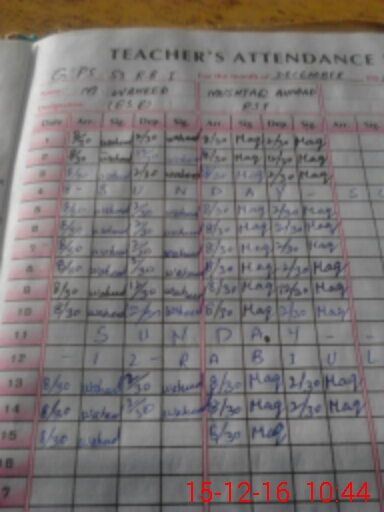 TEACHER'S ATTENDANCE
G P S
DECEMBER
M WAHEED MUSHTAQ AHMAD
(EST) PST
Date Arr. Sig. Dep. Sig. Arr. Sig. Dep. Sig. Arr. Sig.
1 8/30 waheed 2/30 waheed 8/30 Mag 2/30 Mag
2 8/30 waheed waheed 8/30 Mag 2/30 Mag
3 8/30 waheed 2/30 waheed 8/30 Mag 2/30 Mag
4 - S U N D A Y - S
5 8/30 waheed 2/30 waheed 8/30 Mag 2/30 Mag
6 8/30 waheed 2/30 waheed 8/30 Mag 2/30 Mag
7 8/30 waheed 2/30 waheed 8/30 Mag 2/30 Mag
8 8/30 waheed 2/30 waheed 8/30 Mag 2/30 Mag
9 8/30 waheed waheed 8/30 Mag Mag
10 8/30 waheed 2/30 waheed 8/30 Mag 2/30 Mag
11 S U N D A Y - -
12 - 12 - R A B I U L
13 8/30 waheed 2/30 waheed 8/30 Mag 2/30 Mag
14 8/30 waheed 2/30 waheed 8/30 Mag 2/30 Mag
15 8/30 waheed 8/30 Mag
16
7
15-12-16 10:44